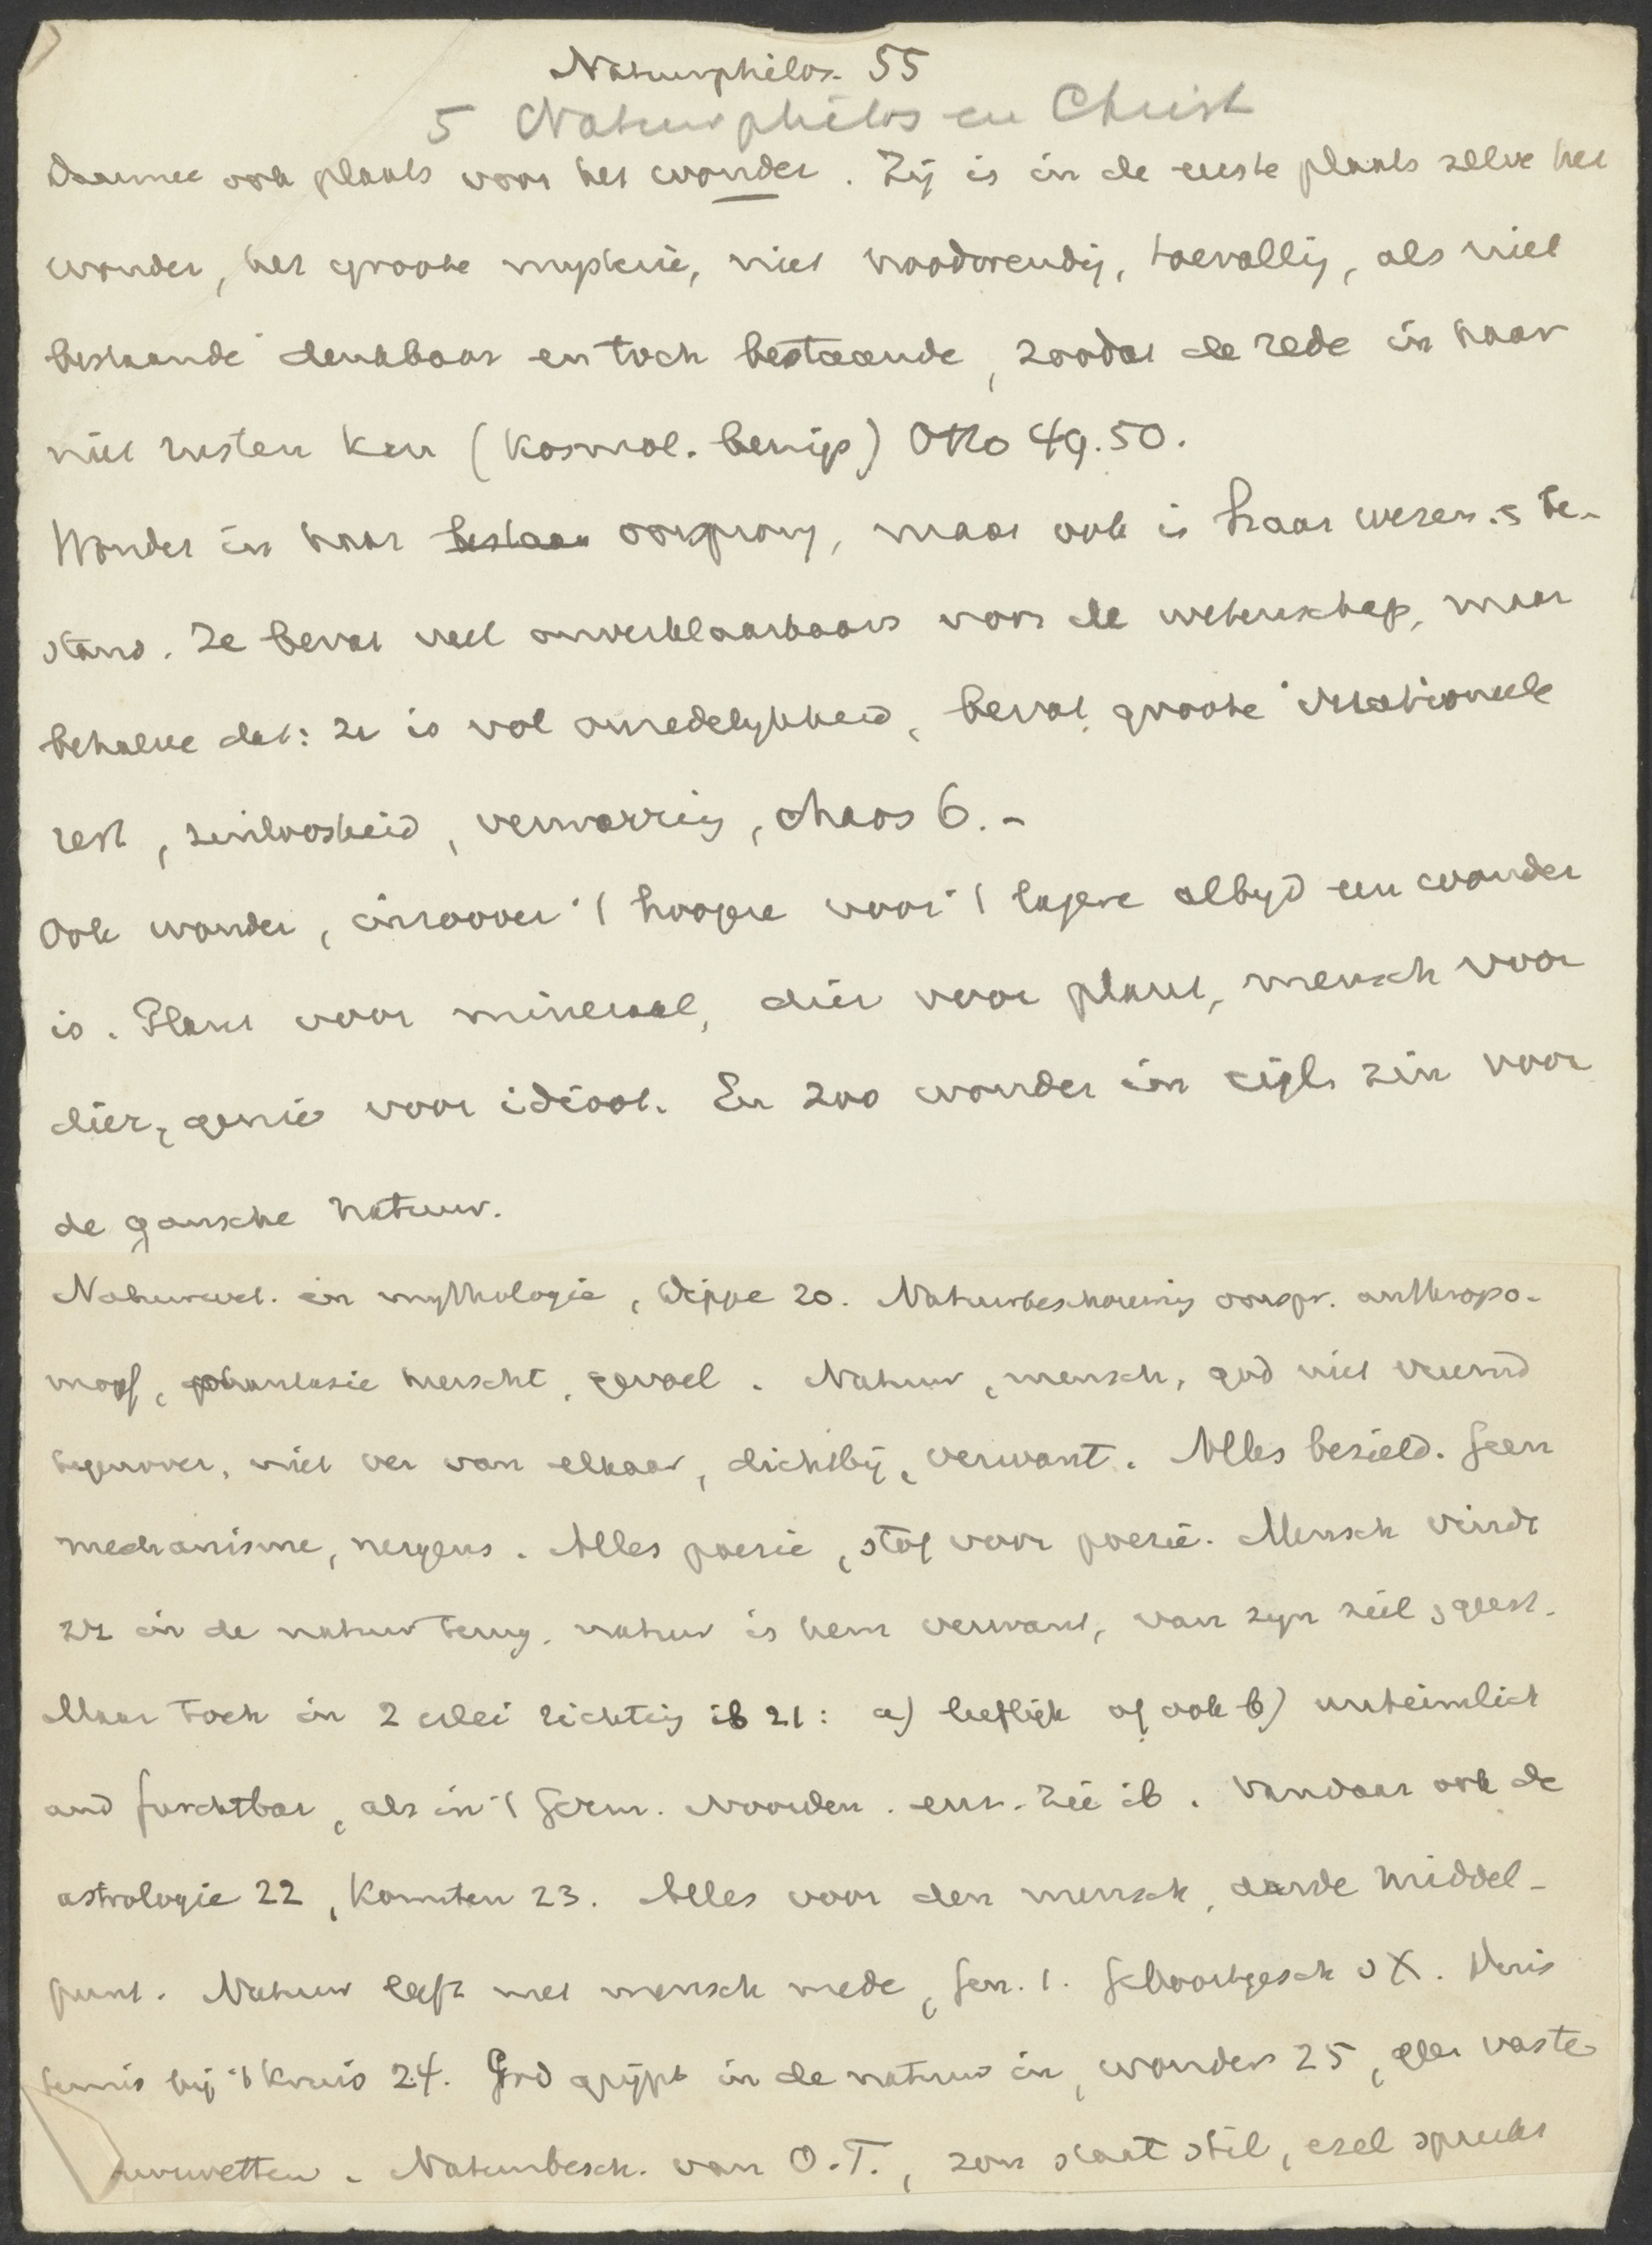 Naturphilos. 55
5 Naturphilos en Christ
Daarmee ook plaats voor het wonder. Zij is in de eerste plaats zelve het
wonder, het groote mysterie, niet noodwendig, toevallig, als niet
bestaande denkbaar en toch bestaande, zoodat de rede in haar
niet rusten kan (kosmol. bewijs) Otto 49.50.
Wonder in haar bestaan oorsprong, maar ook in haar wezen. s be-
stand. Ze bevat veel onverklaarbaars voor de wetenschap, maar
behalve dat: ze is vol onredelijkheid, bevat groote irrationeele
rest, zinloosheid, verwarring, chaos 6. -
Ook wonder, inzoover 't hoogere voor 't lagere altijd een wonder
is. Plant voor mineraal, dier voor plant, mensch voor
dier, genie voor idioot. En zoo wonder in eigl. zin voor
de gansche natuur.
Natuurwet. en mythologie, Dippe 20. Natuurbeschouwing oorspr. anthropo-
morf, phantasie heerscht, gevoel. Natuur, mensch, god niet vreemd
tegenover, niet ver van elkaar, dichtbij, verwant. Alles bezield. Geen
mechanisme, nergens. Alles poezie, stof voor poezie. Mensch vindt
zich in de natuur terug, natuur is hem verwant, van zijn ziel s geest.
Maar toch in 2 erlei richting ib 21: a) lieflijk of ook b) unheimlich
und furchtbar, als in 't Germ. Noorden. enz. Zie ib. Vandaar ook de
astrologie 22, Kometen 23. Alles voor den mensch, aarde middel-
punt. Natuur leeft met mensch mede, Gen. 1. Geboortegesch v X. Duis
ternis bij 't kruis 24. God grijpt in de natuur in, wonders 25, geen vaste
natuurwetten. Natuurbesch. van O.T., zon staat stil, ezel spreekt